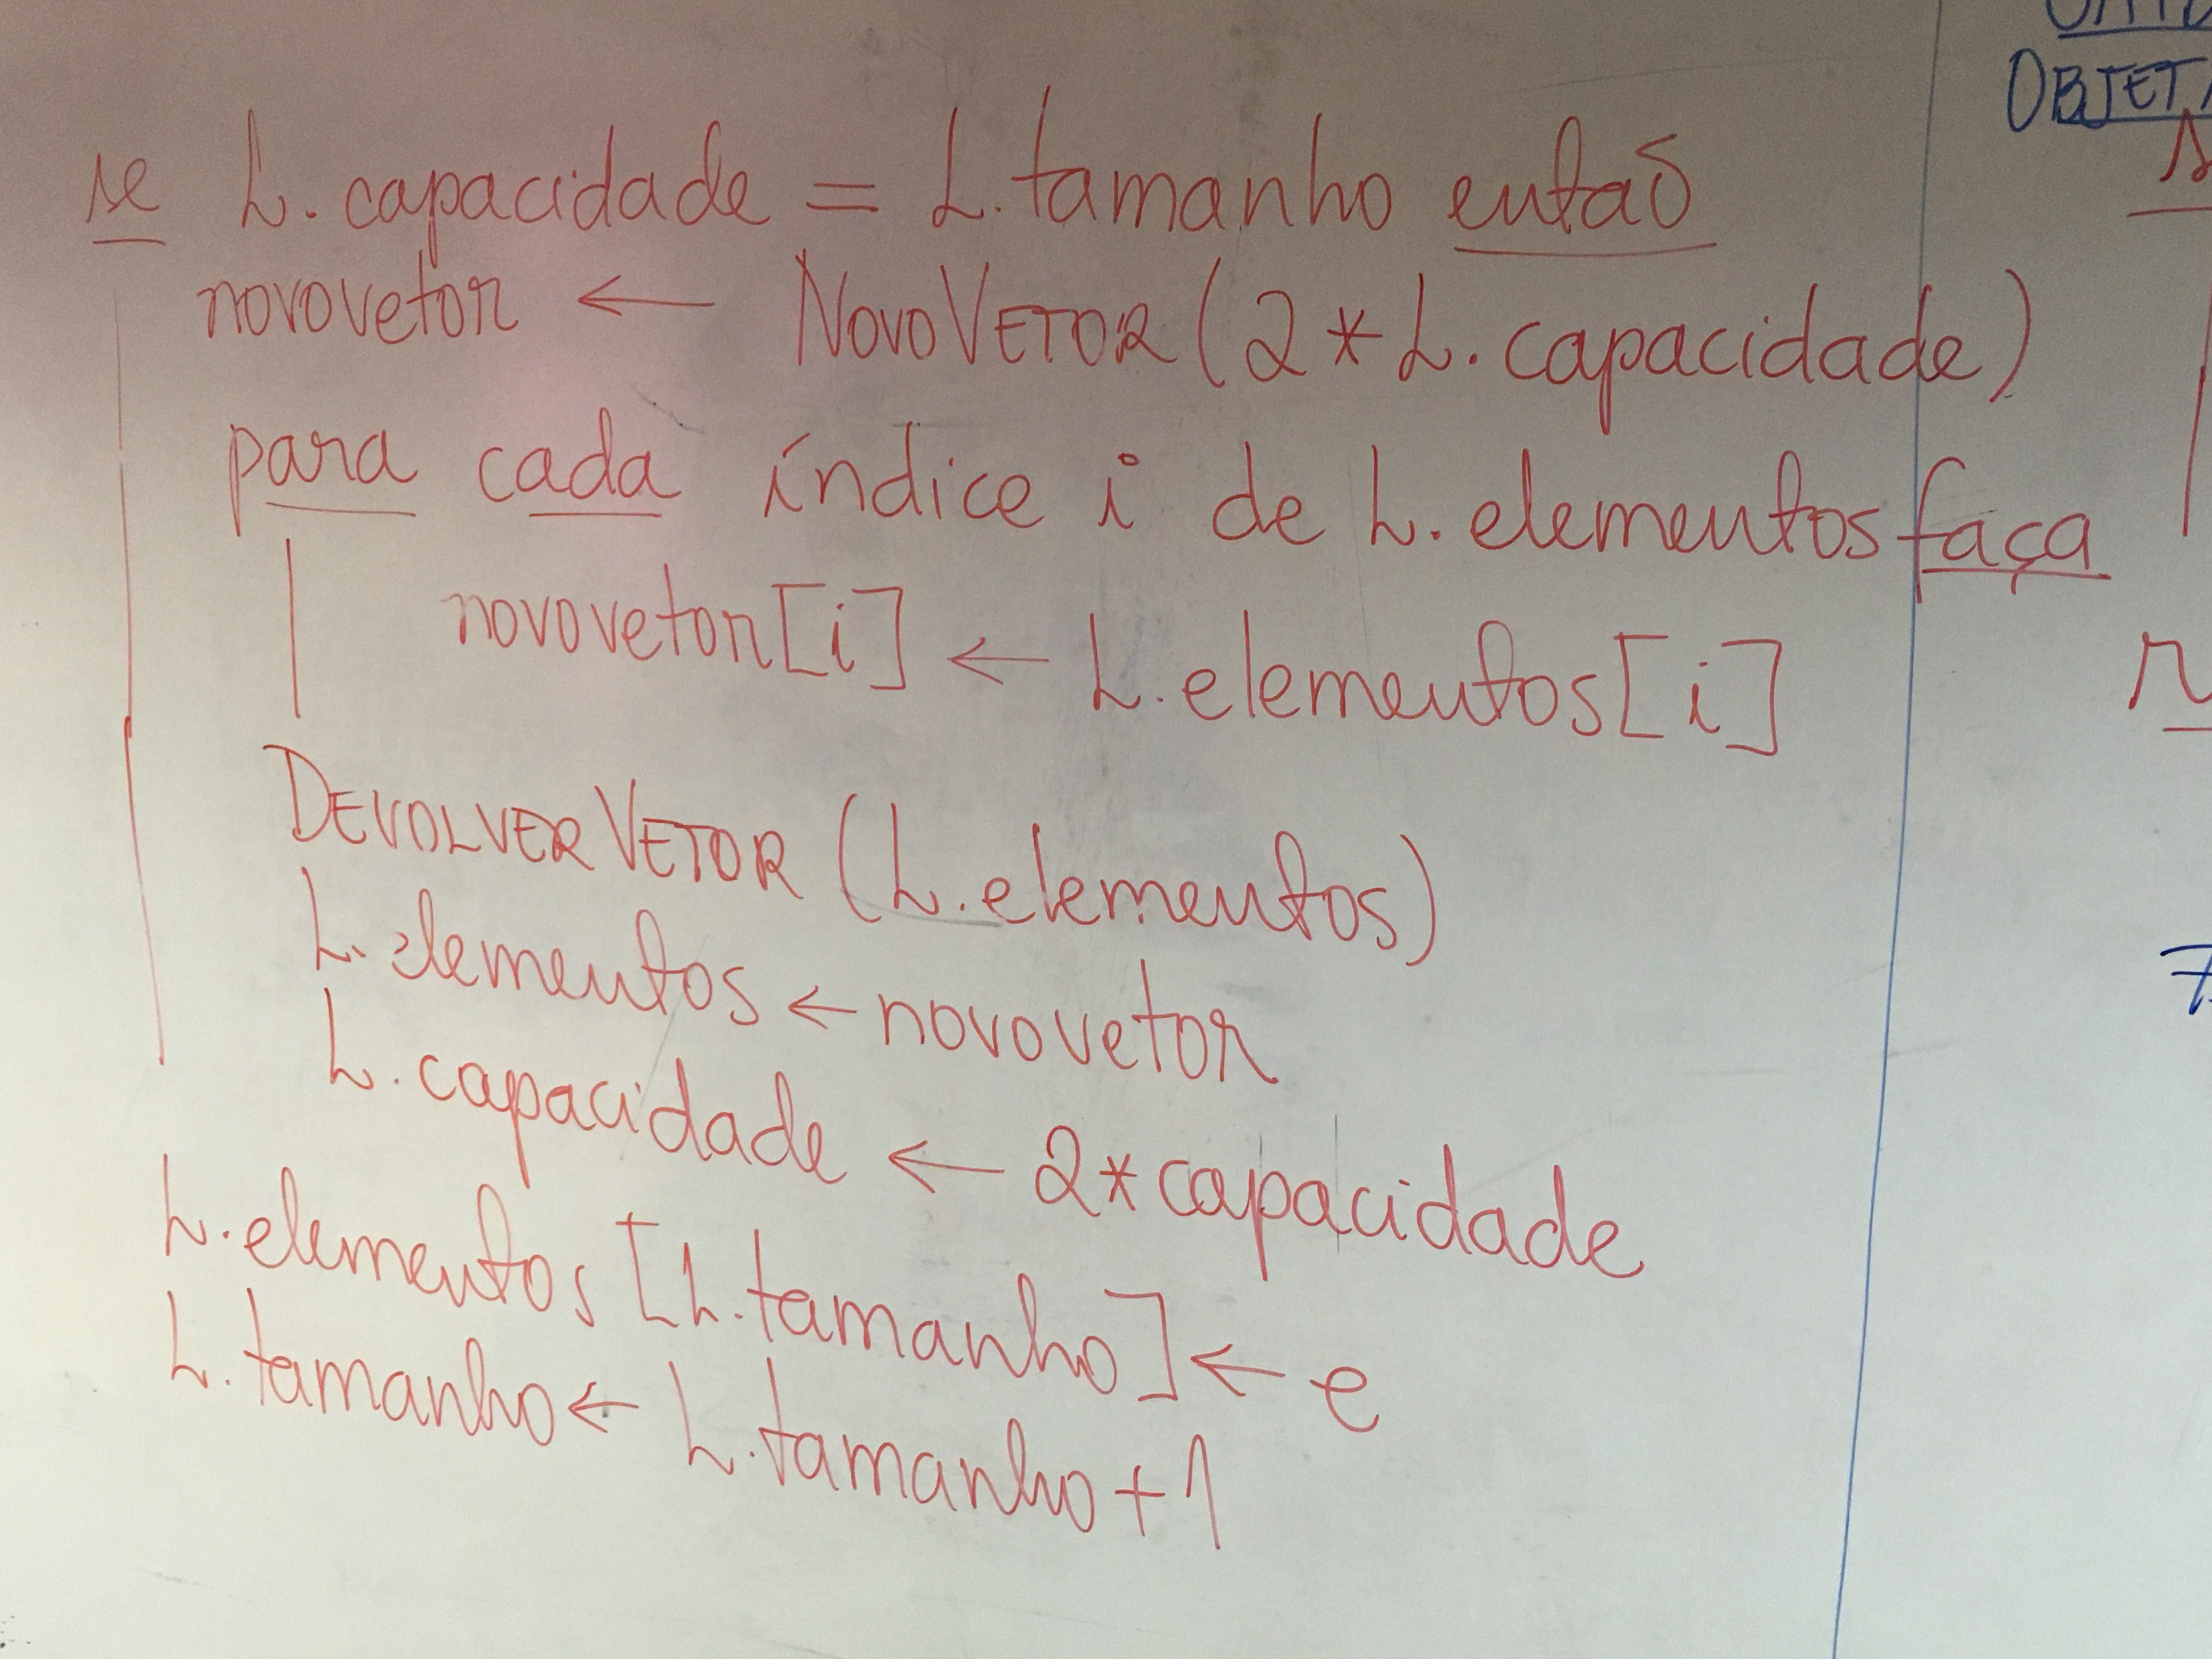 se L.capacidade = L.tamanho então
novovetor ← NOVOVETOR(2*L.capacidade)
para cada índice i de L.elementos faça
novovetor[i] ← L.elementos[i]
DEVOLVERVETOR (L.elementos)
L.elementos ← novovetor
L.capacidade ← 2*capacidade
L.elementos [L.tamanho] ← e
L.tamanho ← L.tamanho+1